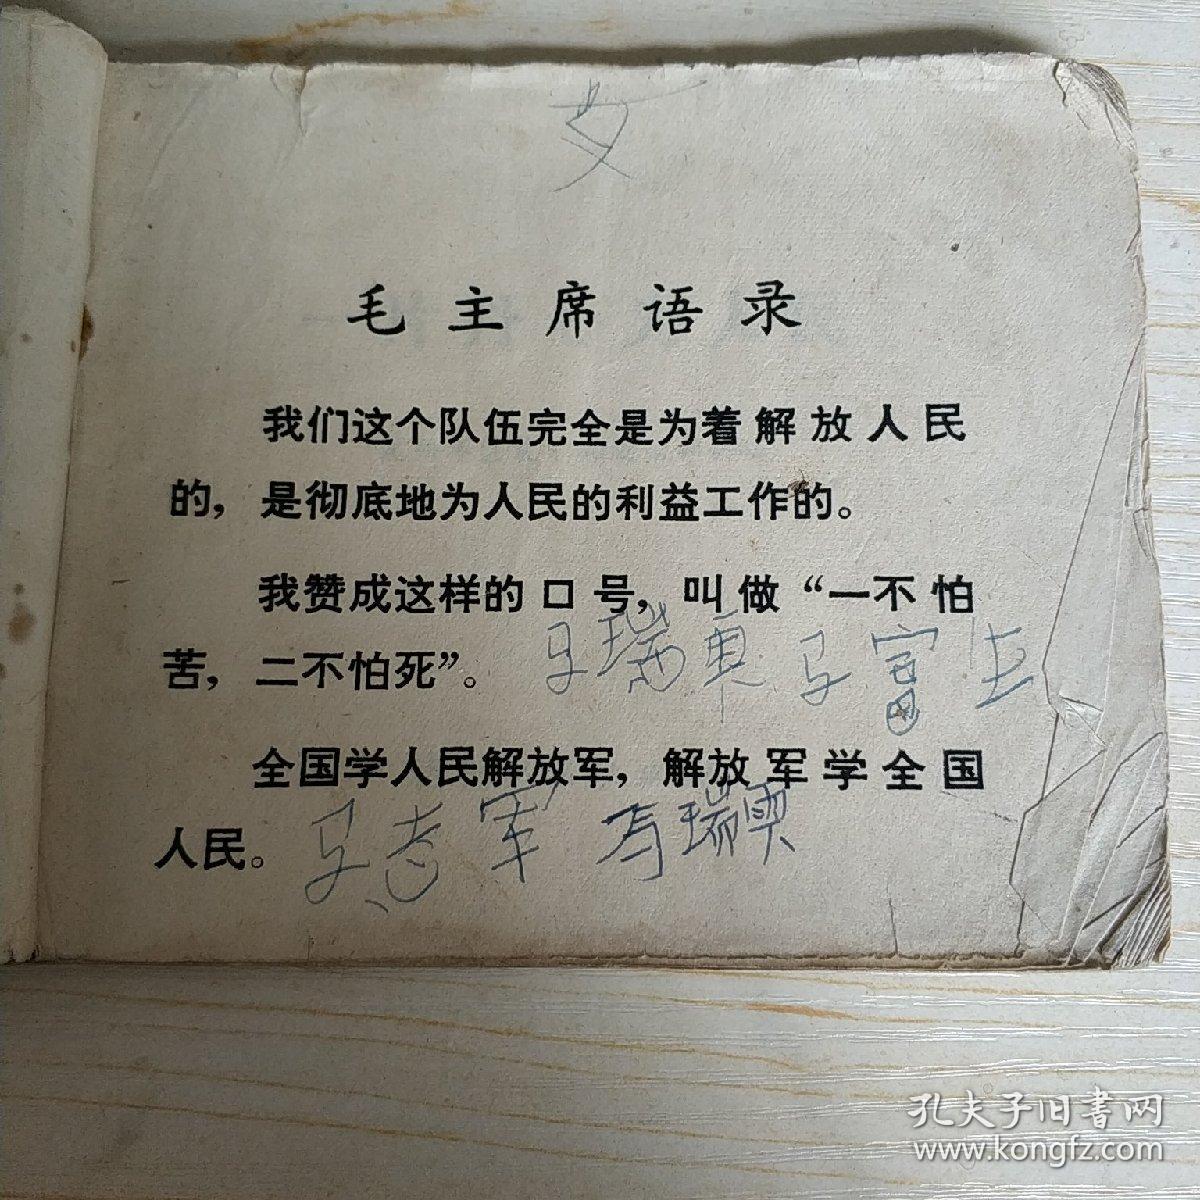 毛主席语录
我们这个队伍完全是为着解放人民
的，是彻底地为人民的利益工作的。
我赞成这样的口号，叫做“一不怕
苦，二不怕死”。
马瑞 马富生
全国学人民解放军，解放军学全国
人民。
马志军 马瑞
孔夫子旧书网
www.kongfz.com